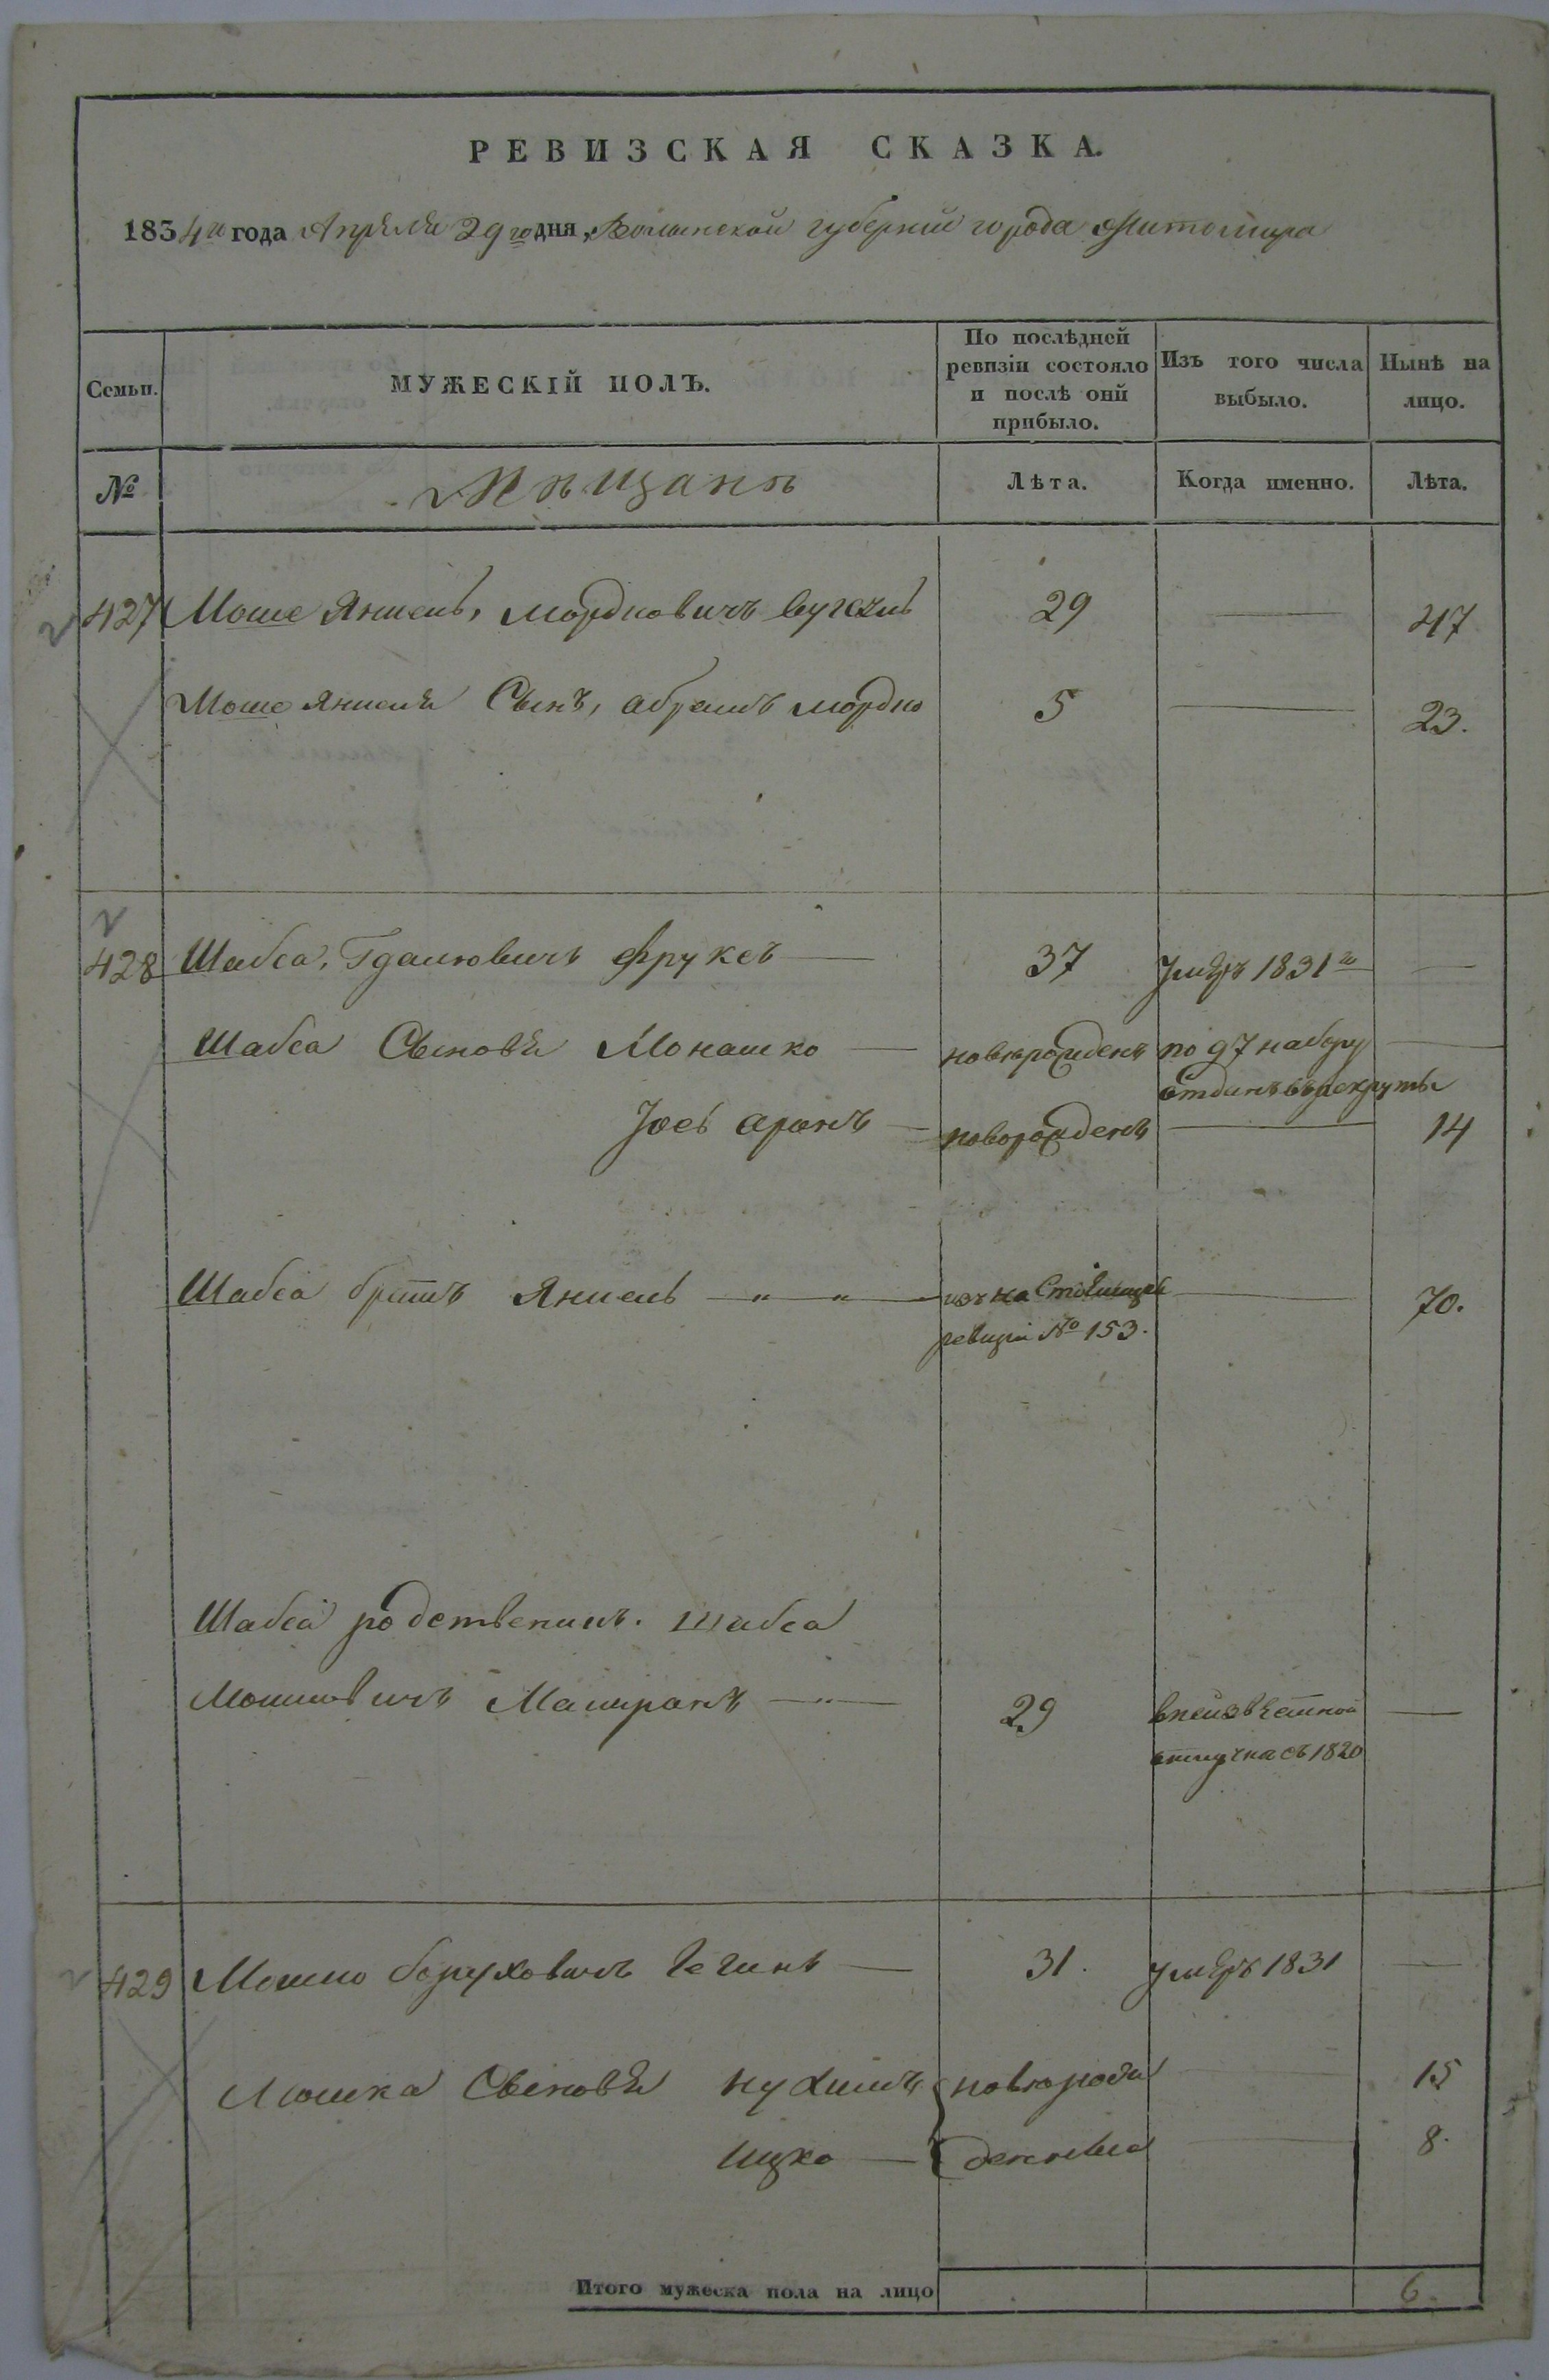 РЕВИЗСКАЯ СКАЗКА.
1834го года Апрѣля 29го дня, Волынской губерніи города Житомира
Семьи.
МУЖЕСКІЙ ПОЛЪ.
По послѣдней ревизіи состояло и послѣ онй прибыло.
Изъ того числа выбыло.
Нынѣ на лицо.
№
Мѣщанъ
Лѣта.
Когда именно.
Лѣта.
427 Моше Янкель, Мордковичъ 29 — 47
Моше Янкеля Сынъ, абрамъ мордко 5 — 23.
428 Шабса, Гдалювичъ Фруксъ — 37 умеръ 1831го —
Шабса Сыновья Монашко — новорожденъ по 97 набору —
отданъ въ рекруты
Јось аронъ — новорожденъ — 14
Шабса братъ Янкель — " — " — изъ — 70.
ревизіи № 153.
Шабса родственикъ. шабса
Мошковичъ — " — 29 внеизвѣстной —
отлучке съ 1820
429 Мошко боруховичъ — 31. умеръ 1831 —
Мошка Сыновья нухимъ новорож — 15
Ицко — денные — 8.
Итого мужеска пола на лицо 6.